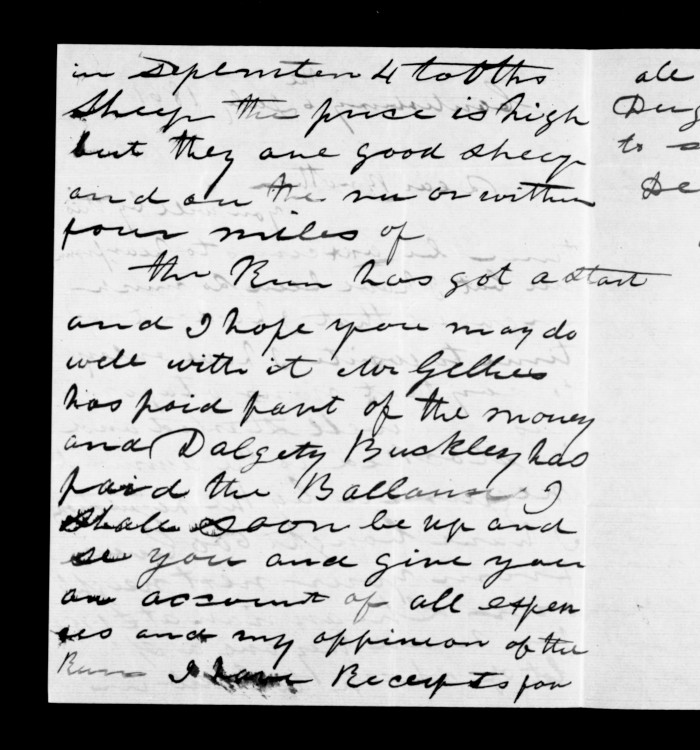 in Sepemten 4 tobths
Sheep the prise is high
but they are good sheep
and on the run or within
four miles of
the Run has got a start
and I hope youe may do
well with it Mr Gellies
has paid part of the money
and Dalgety Buckley has
paid the Ballanse I
shale soon be up and
se you and give you
an account of all expen
ses and my oppineon of the
Run I have Receipts for
ale
to